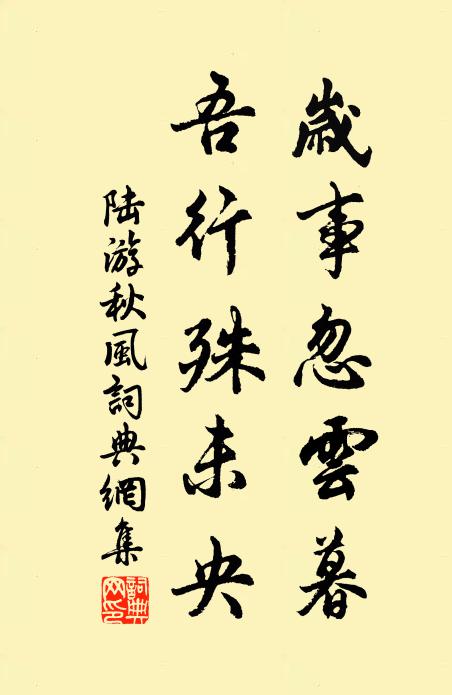 歲事忽雲暮
吾行殊未央
陆游秋風詞典網集
詞典網印